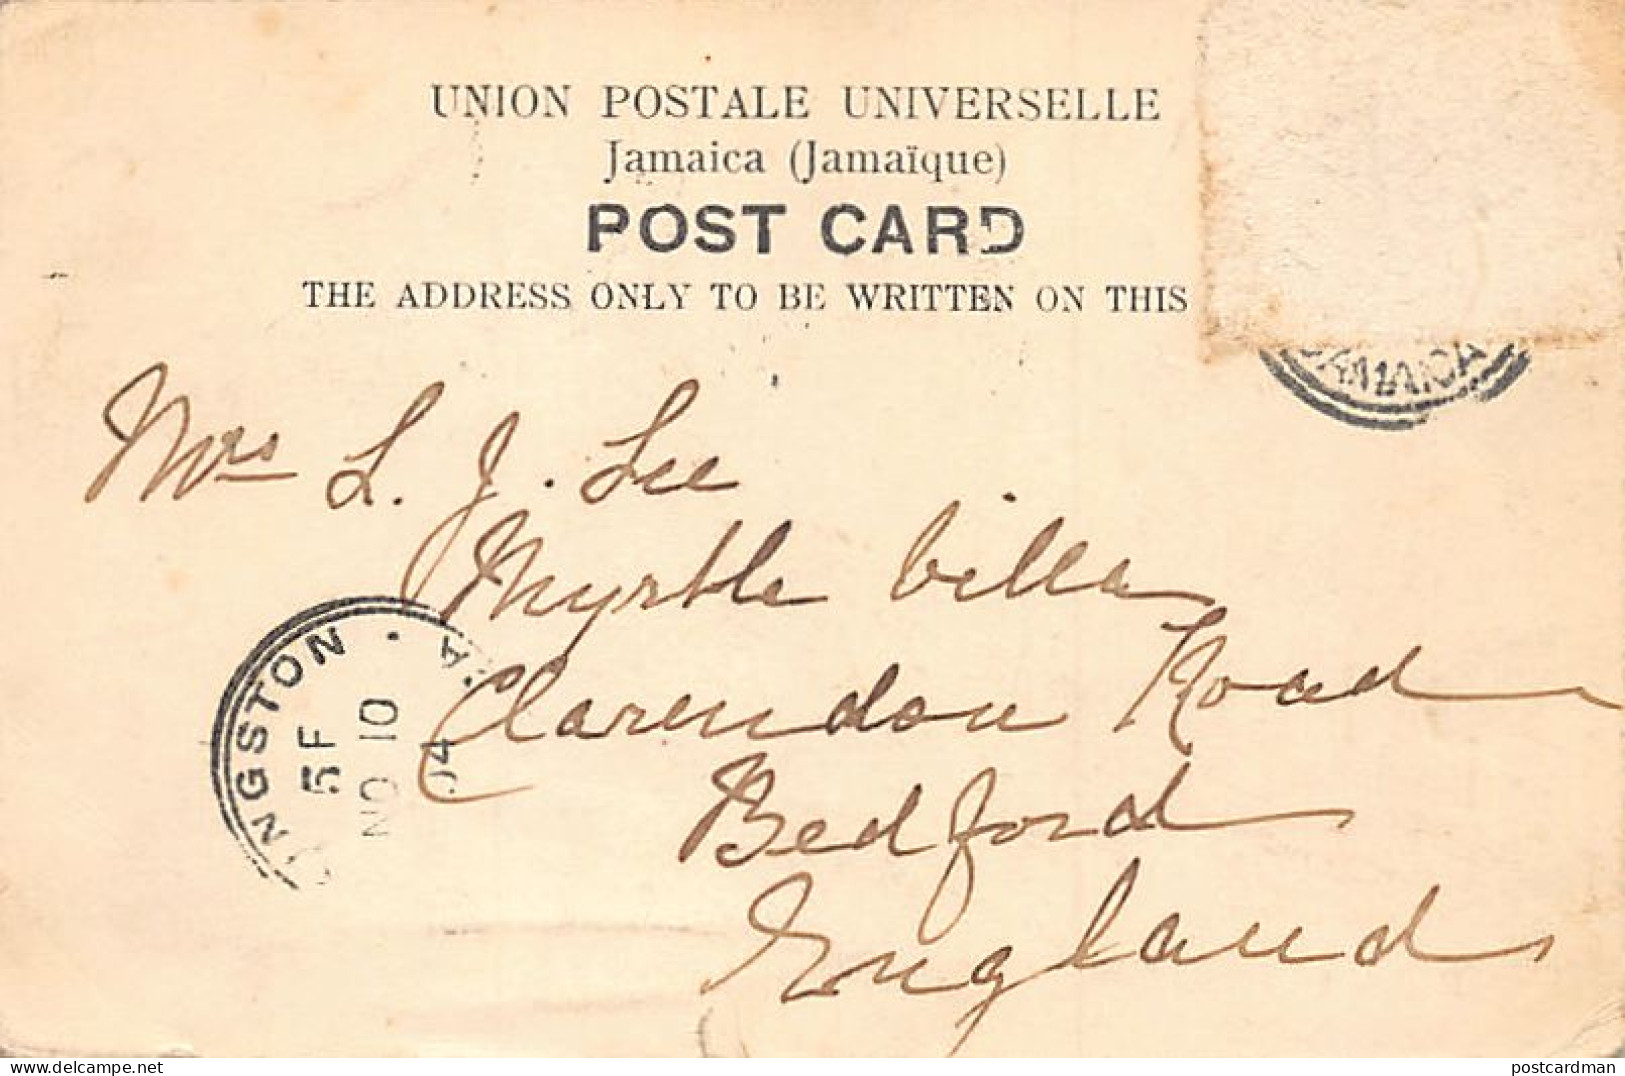 UNION POSTALE UNIVERSELLE
Jamaica (Jamaïque)
POST CARD
THE ADDRESS ONLY TO BE WRITTEN ON THIS
JAMAICA
Mrs L. J. Lee
Myrtle Villa
Clarendon Road
Bedford
England
KINGSTON
5 F
NO 10
04
delcampe.net
postcardman